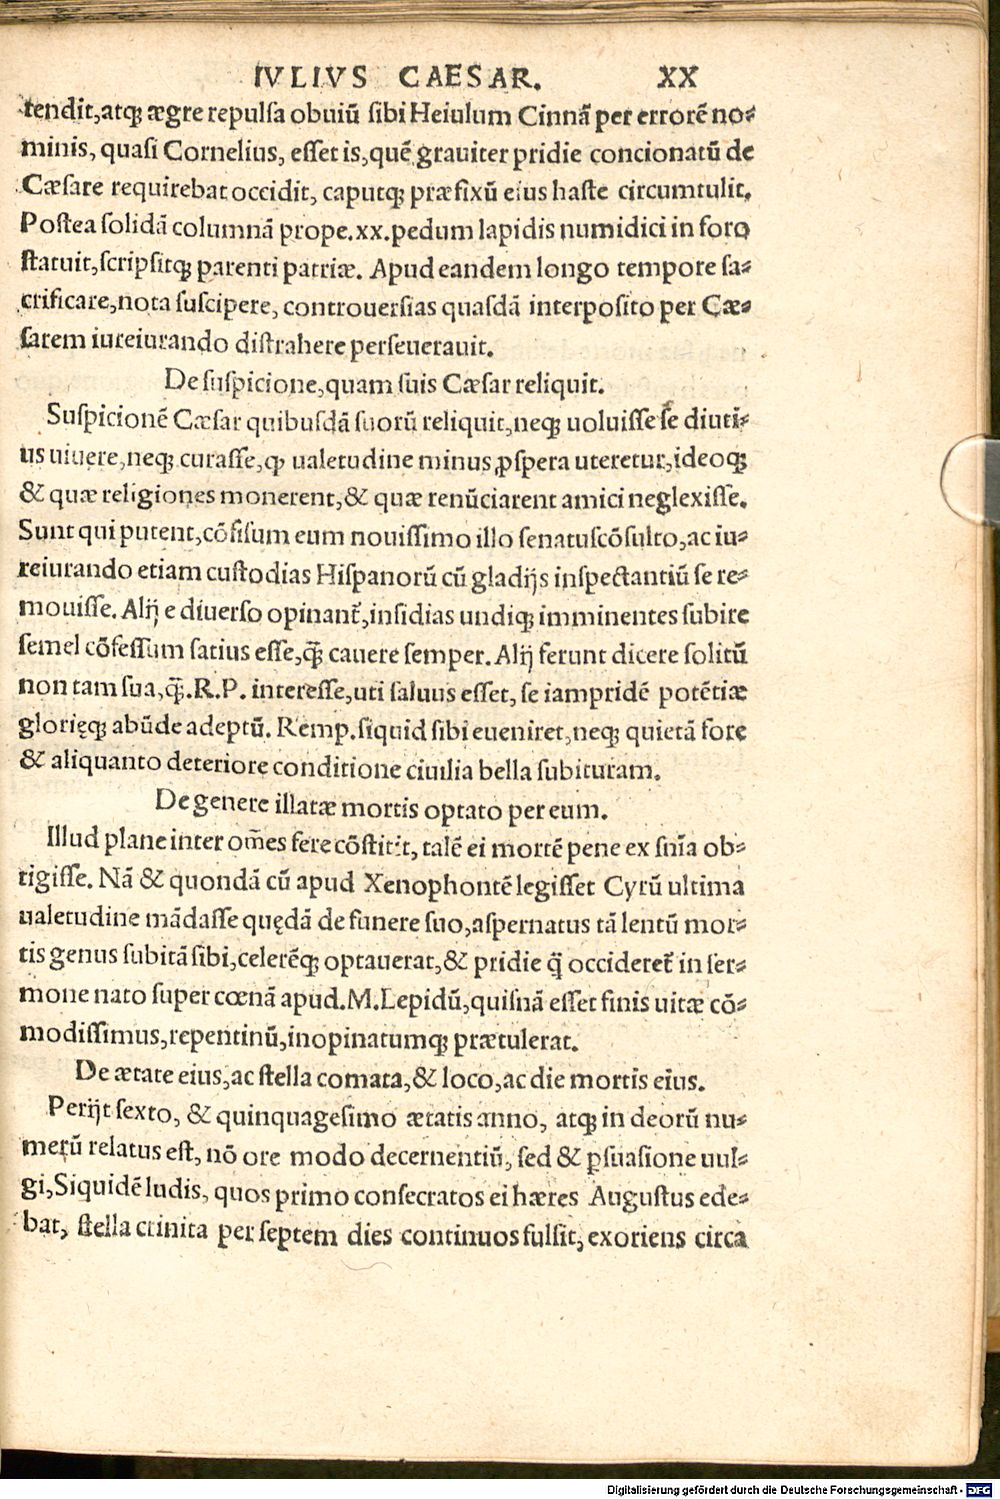 IVLIVS CAESAR. XX
tendit,atq; ægre repulsa obuiū sibi Heiulum Cinnā per errorē no-
minis, quasi Cornelius, esset is,quē grauiter pridie concionatū de
Cæsare requirebat occidit, caputq; præfixū eius haste circumtulit.
Postea solidā columnā prope.xx.pedum lapidis numidici in foro
statuit,scripsitq; parenti patriæ. Apud eandem longo tempore sa-
crificare,nota suscipere, controuersias quasdā interposito per Cæ-
sarem iureiurando distrahere perseuerauit.
De suspicione,quam suis Cæsar reliquit.
Suspicionē Cæsar quibusdā suorū reliquit,neq; uoluisse se diuti-
us uiuere,neq; curasse,ꝙ ualetudine minus ꝓspera uteretur,ideoq;
& quæ religiones monerent,& quæ renūciarent amici neglexisse.
Sunt qui putent,cōfisum eum nouissimo illo senatuscōsulto,ac iu-
reiurando etiam custodias Hispanorū cū gladijs inspectantiū se re-
mouisse. Alij e diuerso opinant᷑,insidias undiq; imminentes subire
semel cōfessum satius esse,q̄; cauere semper. Alij ferunt dicere solitū
non tam sua,q̄;.R.P. interesse,uti saluus esset, se iampridē potētiæ
glorięq; abūde adeptū. Remp.siquid sibi eueniret,neq; quietā fore
& aliquanto deteriore conditione ciuilia bella subituram.
De genere illatæ mortis optato per eum.
Illud plane inter om̄es fere cōstitit, talē ei mortē pene ex snīa ob-
tigisse. Nā & quondā cū apud Xenophontē legisset Cyrū ultima
ualetudine mādasse quędā de funere suo,aspernatus tā lentū mor-
tis genus subitā sibi,celerēq; optauerat,& pridie q̄ occideret᷑ in ser-
mone nato super cœnā apud.M.Lepidū,quisnā esset finis uitæ cō-
modissimus,repentinū,inopinatumq; prætulerat.
De ætate eius,ac stella comata,& loco,ac die mortis eius.
Perijt sexto, & quinquagesimo ætatis anno, atq; in deorū nu-
merū relatus est, nō ore modo decernentiū, sed & ꝑsuasione uul-
gi,Siquidē ludis, quos primo consecratos ei hæres Augustus ede-
bat, stella crinita per septem dies continuos fulsit, exoriens circa
Digitalisierung gefördert durch die Deutsche Forschungsgemeinschaft - DFG